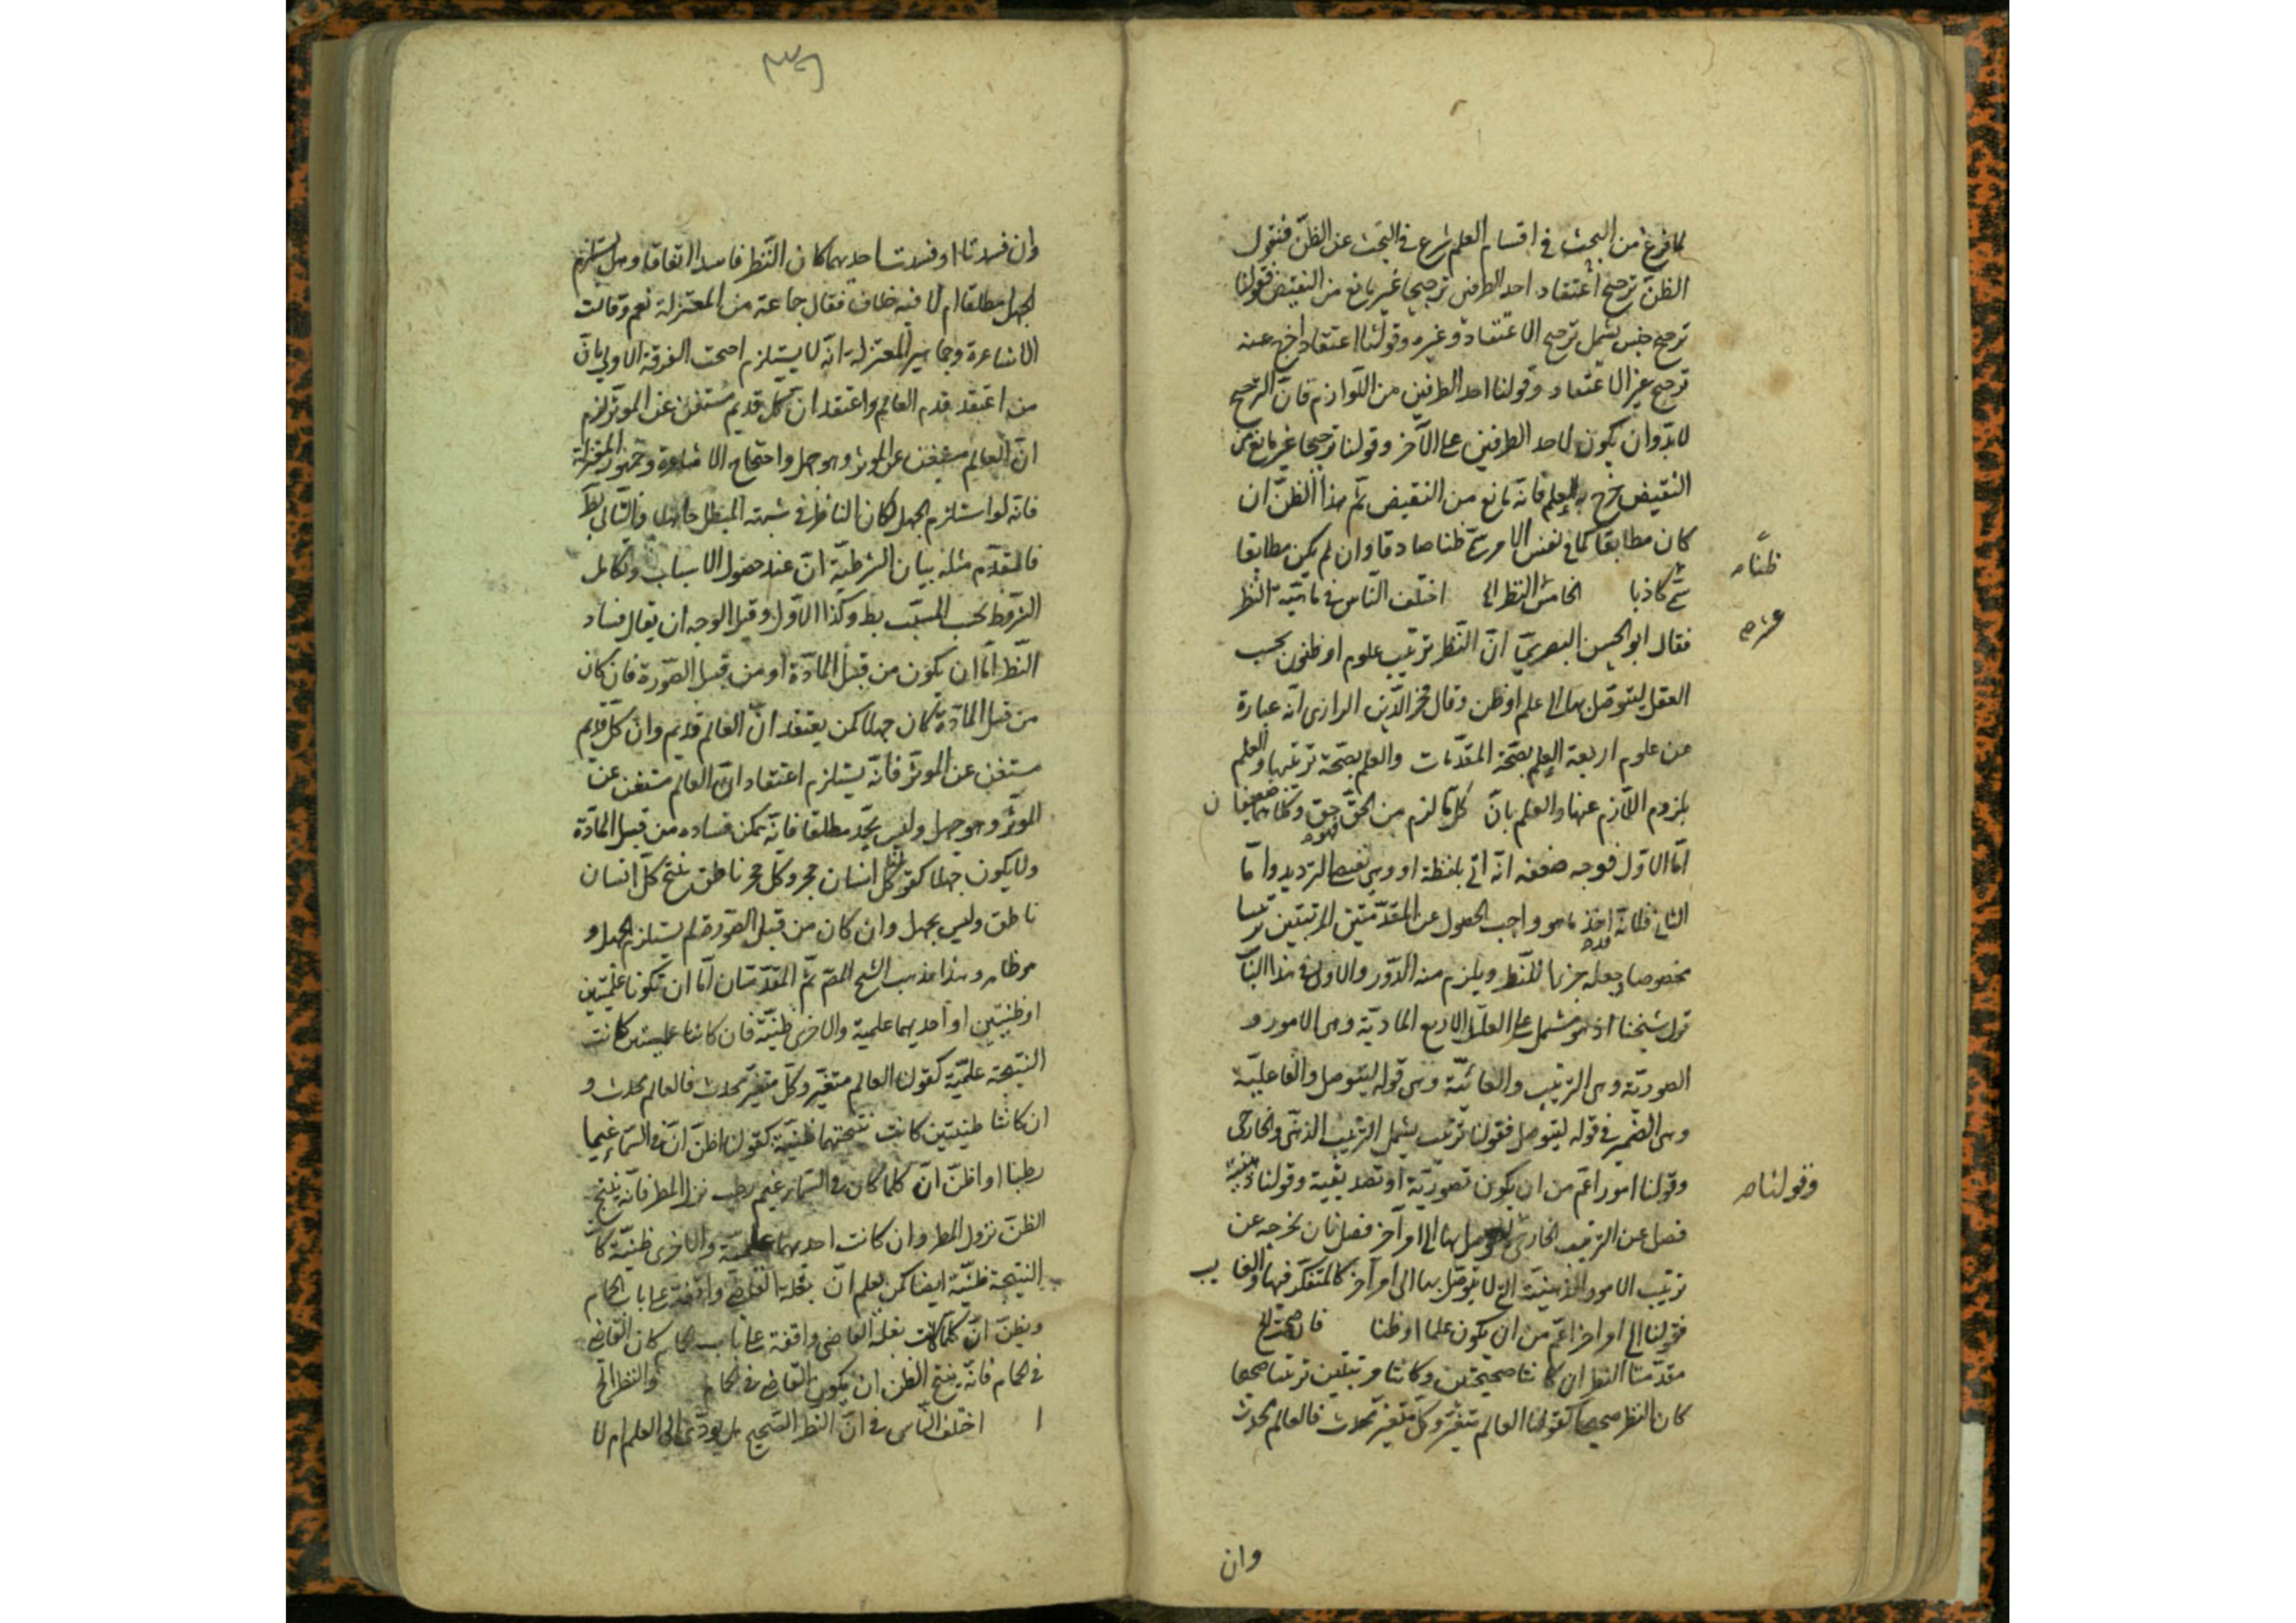 لما فرغ من البحث فى اقسام العلم شرع فى البحث عن الظن فنقول
الظن ترجيح اعتقاد احد الطرفين ترجيحا غير مانع من النقيض فقولنا
ترجيح جنس يشمل ترجيح الاعتقاد وغيره وقولنا اعتقاد اخرج عنه
ترجيح غير الاعتقاد وقولنا احد الطرفين من اللوازم فان الترجيح
لابد وان يكون لاحد الطرفين على الآخر وقولنا ترجيحا غير مانع من
النقيض خرج به العلم فانه مانع من النقيض ثم هذا الظن ان
كان مطابقا لما فى نفس الامر سمى ظنا صادقا وان لم يكن مطابقا
ظنا
سمى كاذبا الخامس النظر الخ اختلف الناس فى ماهية النظر
فقال ابو الحسين البصرى ان النظر ترتيب علوم او ظنون بحسب
العقل ليتوصل بها الى علم او ظن وقال فخر الدين الرازى انه عبارة
عن علوم اربعة العلم بصحة المقدمات والعلم بصحة ترتيبها والعلم
بلزوم اللازم عنها والعلم بان كل ما لزم من الحق حق وكلاهما ضعيفان
اما الاول فوجه ضعفه انه اتى بلفظة او وهى الترديد واما
الثانى فلانه اخذ ما هو واجب الحصول عن المقدمتين المرتبتين ترتيبا
مخصوصا وجعله جزءا للنظر ويلزم منه الدور والاولى فى هذا الباب
قول شيخنا اذ هو مشتمل على العلل الاربع المادية وهى الامور و
الصورية وهى الترتيب والغائية وهى قوله ليتوصل والفاعلية
وهى الضمير فى قوله ليتوصل فقولنا ترتيب يشمل الترتيب الذهنى والخارجى
وقولنا امور اعم من ان يكون تصورية او تصديقية وقولنا ذهنية
وقولنا
فصل عن الترتيب الخارجى ليتوصل بها الى امر آخر فصل ثان يخرجه عن
ترتيب الامور الذهنية التى لا يتوصل بها الى امر آخر كالمتفكر فيها
فقولنا الى امر اخر اعم من ان يكون علما او ظنا فان صحت الخ
مقدمتا النظر ان كانتا صحيحتين وكانتا مرتبتين ترتيبا صحيحا
كان النظر صحيحا كقولنا العالم متغير وكل متغير محدث فالعالم محدث
وان
وان فسدتا او فسدت احديهما كان النظر فاسدا اتفاقا وهل يستلزم
الجهل مطلقا ام لا فيه خلاف فقال جماعة من المعتزلة نعم وقالت
الاشاعرة وجماهير المعتزلة انه لا يستلزم احتجت الفرقة الاولى بان
من اعتقد قدم العالم واعتقد ان كل قديم مستغن عن الموثر لزم
ان العالم مستغن عن الموثر وهو جهل واحتجاج الاشاعرة وجمهور المعتزلة
فانه لو استلزم الجهل لكان الناظر فى شبهة المبطل جاهلا والتالى بط
فالمقدم مثله بيان الشرطية ان عند حصول الاسباب وتكامل
الشروط يجب المسبب بط وكذا الاول وقيل الوجه ان يقال فساد
النظر اما ان يكون من قبل المادة او من قبل الصورة فان كان
من قبل المادة كان جهلا كمن يعتقد ان العالم قديم وان كل قديم
مستغن عن الموثر فانه يستلزم اعتقاد ان العالم مستغن عن
الموثر وهو جهل وليس بجيد مطلقا فانه يمكن فساده من قبل المادة
ولا يكون جهلا كقولنا كل انسان حجر وكل حجر ناطق ينتج كل انسان
ناطق وليس بجهل وان كان من قبل الصورة لم يستلزم الجهل و
هو ظاهر وهذا مذهب الشيخ المص ثم المقدمتان اما ان تكونا علميتين
او ظنيتين او احديهما علمية والاخرى ظنية فان كانتا علميتين كانت
النتيجة علمية كقولنا العالم متغير وكل متغير محدث فالعالم محدث و
ان كانتا ظنيتين كانت نتيجتهما ظنية كقولنا اظن ان فى السماء غيما
رطبا او اظن ان كلما كان فى السماء غيم رطب نزل المطر فانه ينتج
الظن نزول المطر وان كانت احديهما علمية والاخرى ظنية كانت
النتيجة ظنية ايضا كمن يعلم ان بغلة القاضى واقفة على باب الحمام
ويظن ان كلما كانت بغلة القاضى واقفة على باب الحمام كان القاضى
فى الحمام فانه ينتج الظن ان يكون القاضى فى الحمام والنظر الخ
اختلف الناس فى ان النظر الصحيح هل يودى الى العلم ام لا